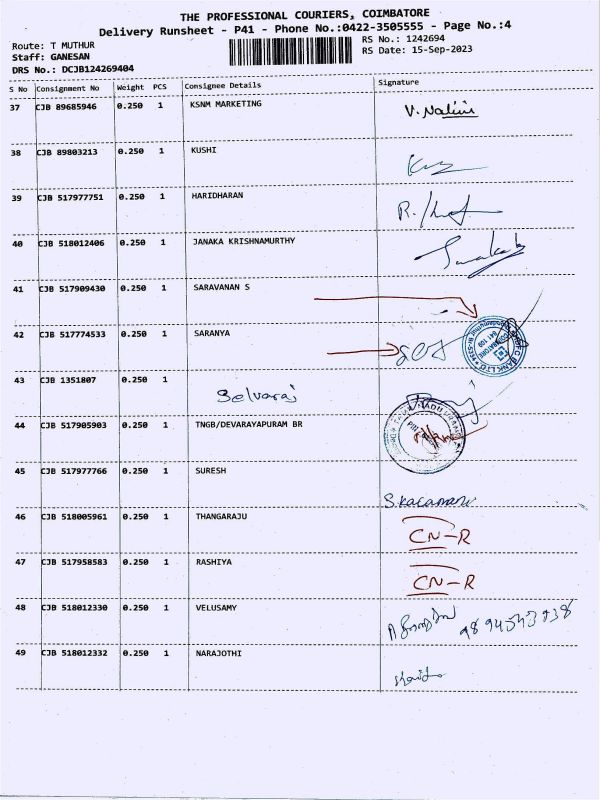 THE PROFESSIONAL COURIERS, COIMBATORE
Delivery Runsheet - P41 - Phone No.:0422-3505555 - Page No.:4
Route: T MUTHUR
RS No.: 1242694
Staff: GANESAN
RS Date: 15-Sep-2023
DRS No.: DCJB124269404
S No Consignment No Weight PCS Consignee Details Signature
37 CJB 89685946 0.250 1 KSNM MARKETING V. Nalini
38 CJB 89803213 0.250 1 KUSHI
39 CJB 517977751 0.250 1 HARIDHARAN
40 CJB 518012406 0.250 1 JANAKA KRISHNAMURTHY
41 CJB 517909430 0.250 1 SARAVANAN S
42 CJB 517774533 0.250 1 SARANYA
43 CJB 1351807 0.250 1 Selvaraj
44 CJB 517905903 0.250 1 TNGB/DEVARAYAPURAM BR
45 CJB 517977766 0.250 1 SURESH
46 CJB 518005961 0.250 1 THANGARAJU CN-R
47 CJB 517958583 0.250 1 RASHIYA CN-R
48 CJB 518012330 0.250 1 VELUSAMY
49 CJB 518012332 0.250 1 NARAJOTHI